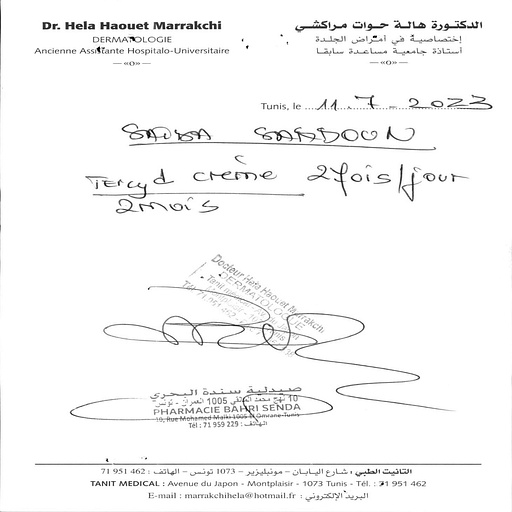 Dr. Hela Haouet Marrakchi
DERMATOLOGIE
Ancienne Assistante Hospitalo-Universitaire
—«o»—
الدكتورة هالة حوات مراكشي
إختصاصية في أمراض الجلدة
أستاذة جامعية مساعدة سابقا
—«o»—
Tunis, le 11.7.2023
SARDOUN
crème 2 fois/jour
2 mois
Docteur Hela Haouet Marrakchi
DERMATOLOGUE
صيدلية سندة البحري
PHARMACIE BAHRI SENDA
10, Rue Mohamed Malki 1005 El Omrane-Tunis
Tél : 71 959 229 : الهاتف
التانيت الطبي : شارع اليابان – مونبليزير – 1073 تونس – الهاتف : 462 951 71
TANIT MEDICAL : Avenue du Japon - Montplaisir - 1073 Tunis - Tél. : 71 951 462
E-mail : marrakchihela@hotmail.fr : البريد الإلكتروني